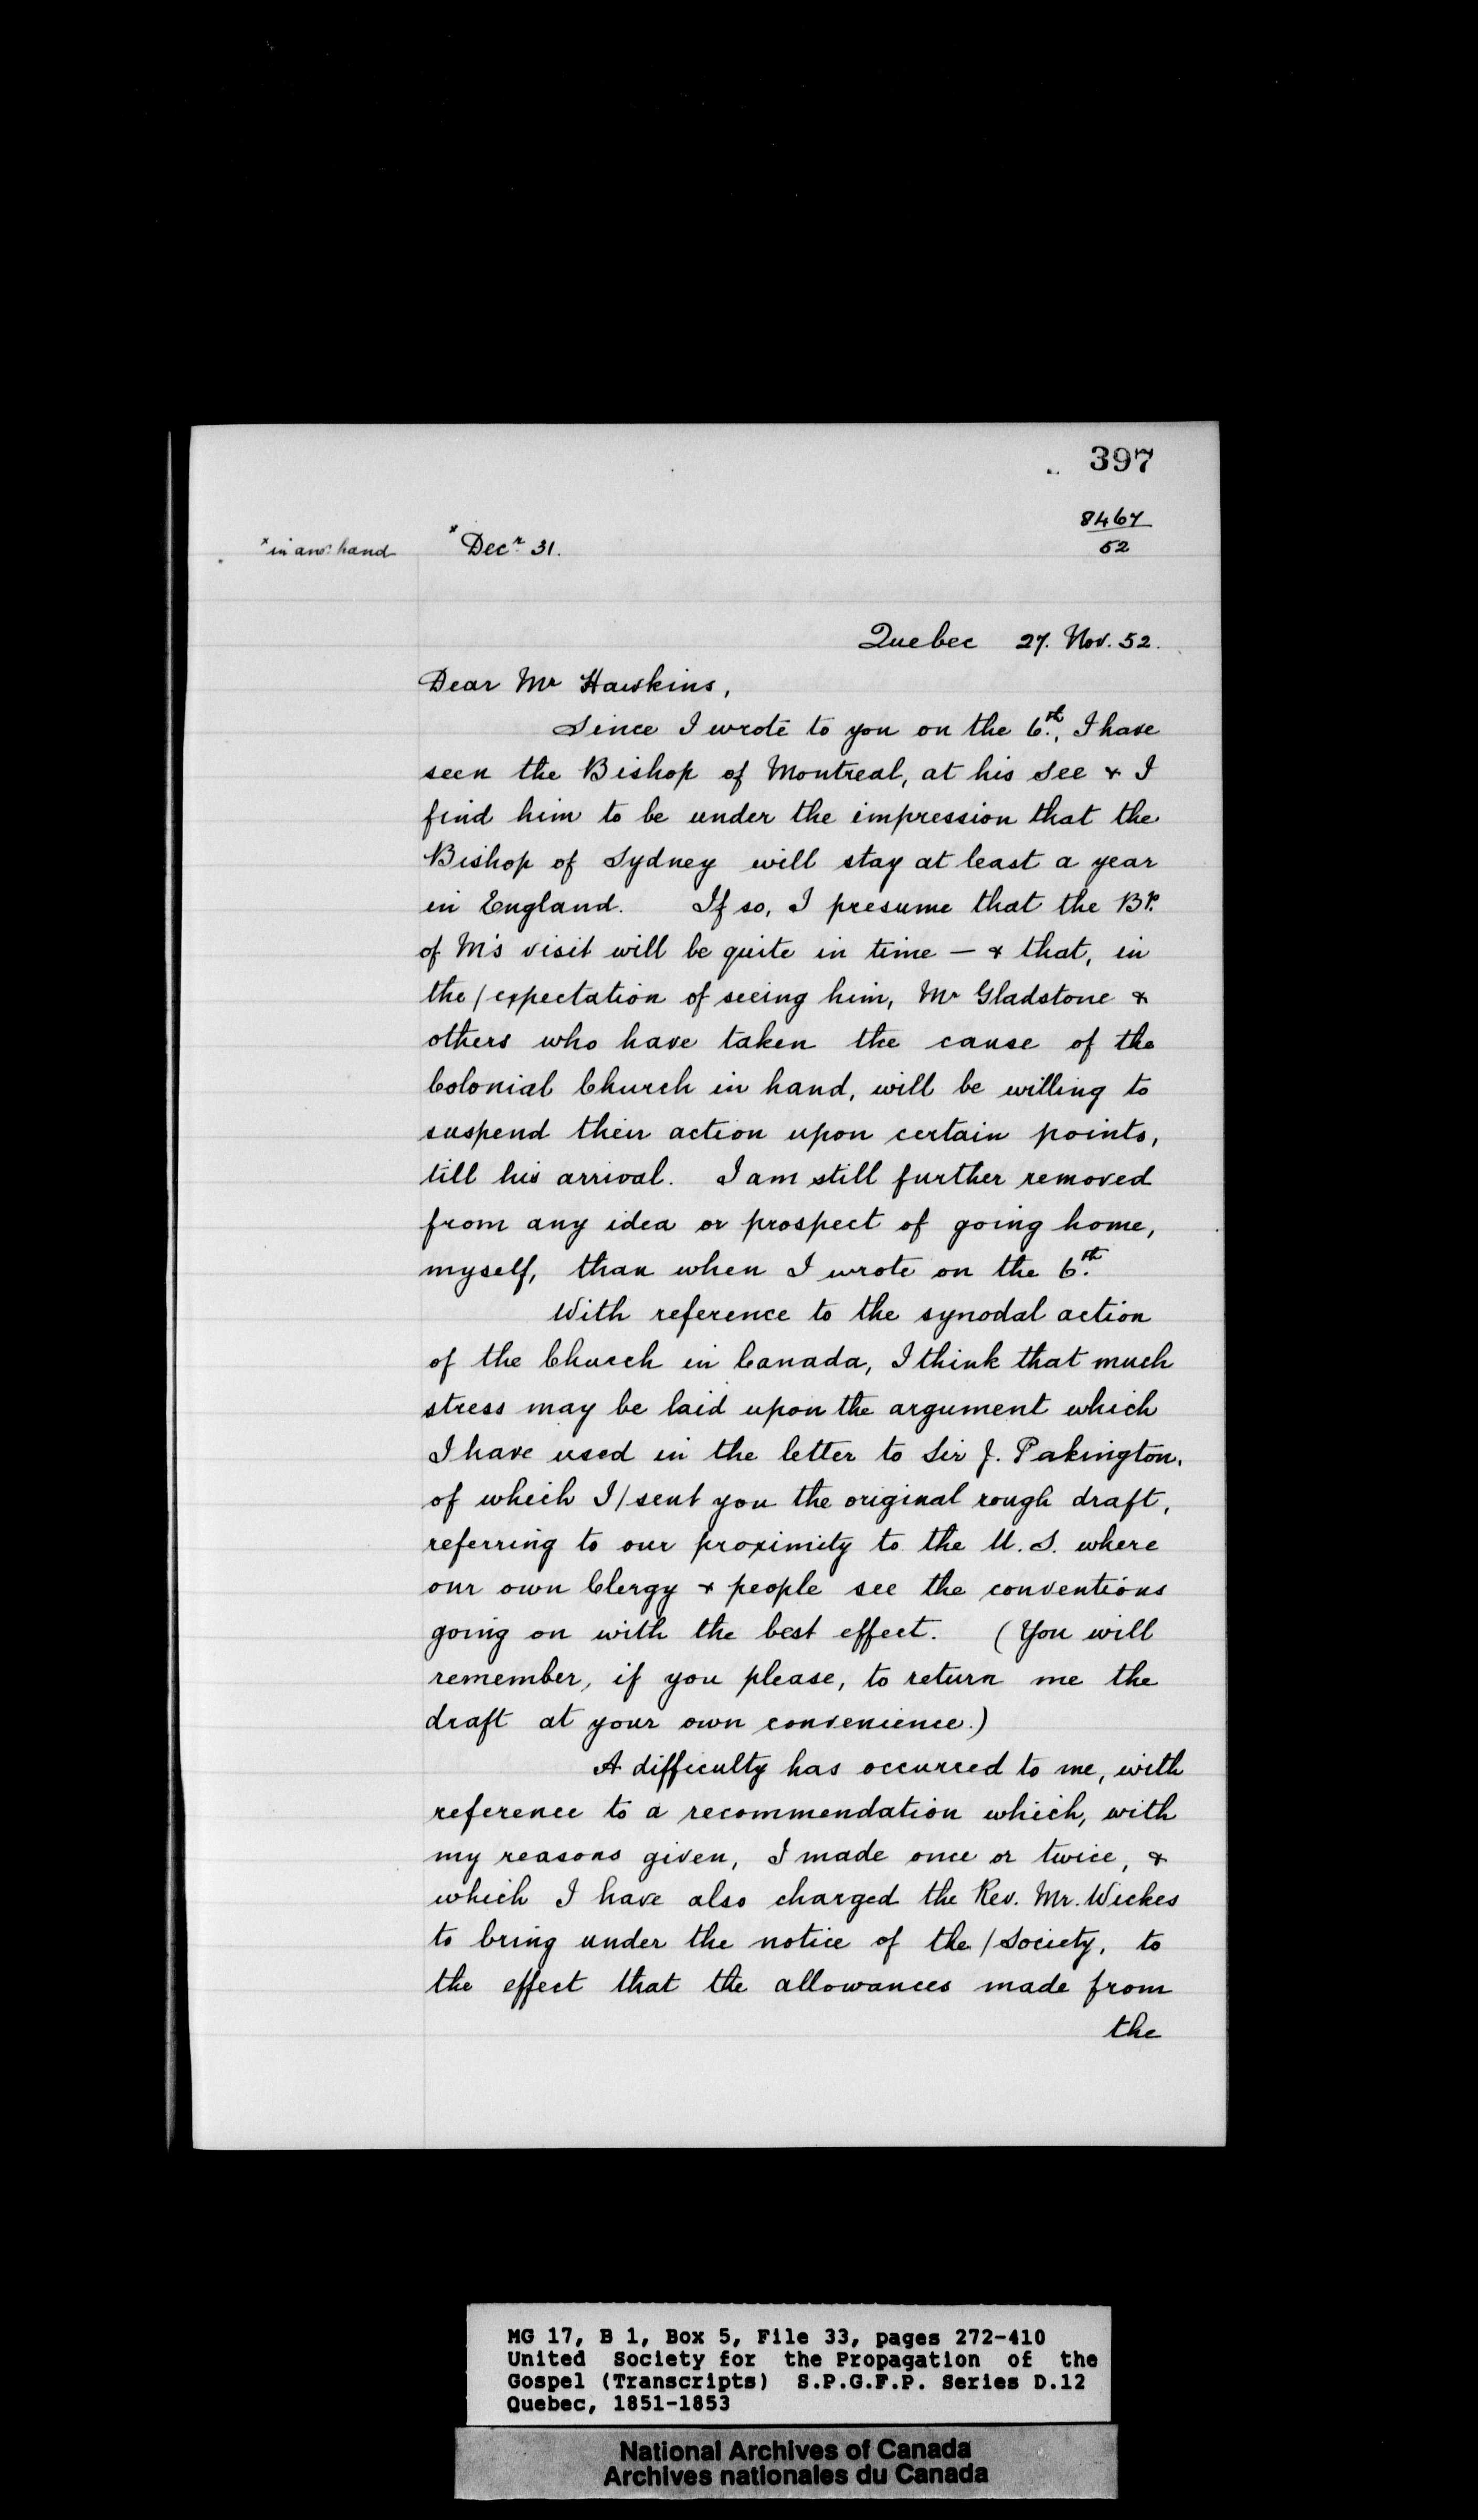 397
8467
52
* in ano: hand
* Decr 31.
Quebec 27. Nov. 52.
Dear Mr Hawkins,
Since I wrote to you on the 6th., I have
seen the Bishop of Montreal, at his See & I
find him to be under the impression that the
Bishop of Sydney will stay at least a year
in England. If so, I presume that the Bp.
of M's visit will be quite in time — & that, in
the / expectation of seeing him, Mr Gladstone &
others who have taken the cause of the
Colonial Church in hand, will be willing to
suspend their action upon certain points,
till his arrival. I am still further removed
from any idea or prospect of going home,
myself, than when I wrote on the 6th.
With reference to the synodal action
of the Church in Canada, I think that much
stress may be laid upon the argument which
I have used in the letter to Sir J. Pakington,
of which I / sent you the original rough draft,
referring to our proximity to the U. S. where
our own Clergy & people see the conventions
going on with the best effect. (You will
remember, if you please, to return me the
draft at your own convenience.)
A difficulty has occurred to me, with
reference to a recommendation which, with
my reasons given, I made once or twice, &
which I have also charged the Rev. Mr. Wickes
to bring under the notice of the / Society, to
the effect that the allowances made from
the
MG 17, B 1, Box 5, File 33, pages 272-410
United Society for the Propagation of the
Gospel (Transcripts) S.P.G.F.P. Series D.12
Quebec, 1851-1853
National Archives of Canada
Archives nationales du Canada